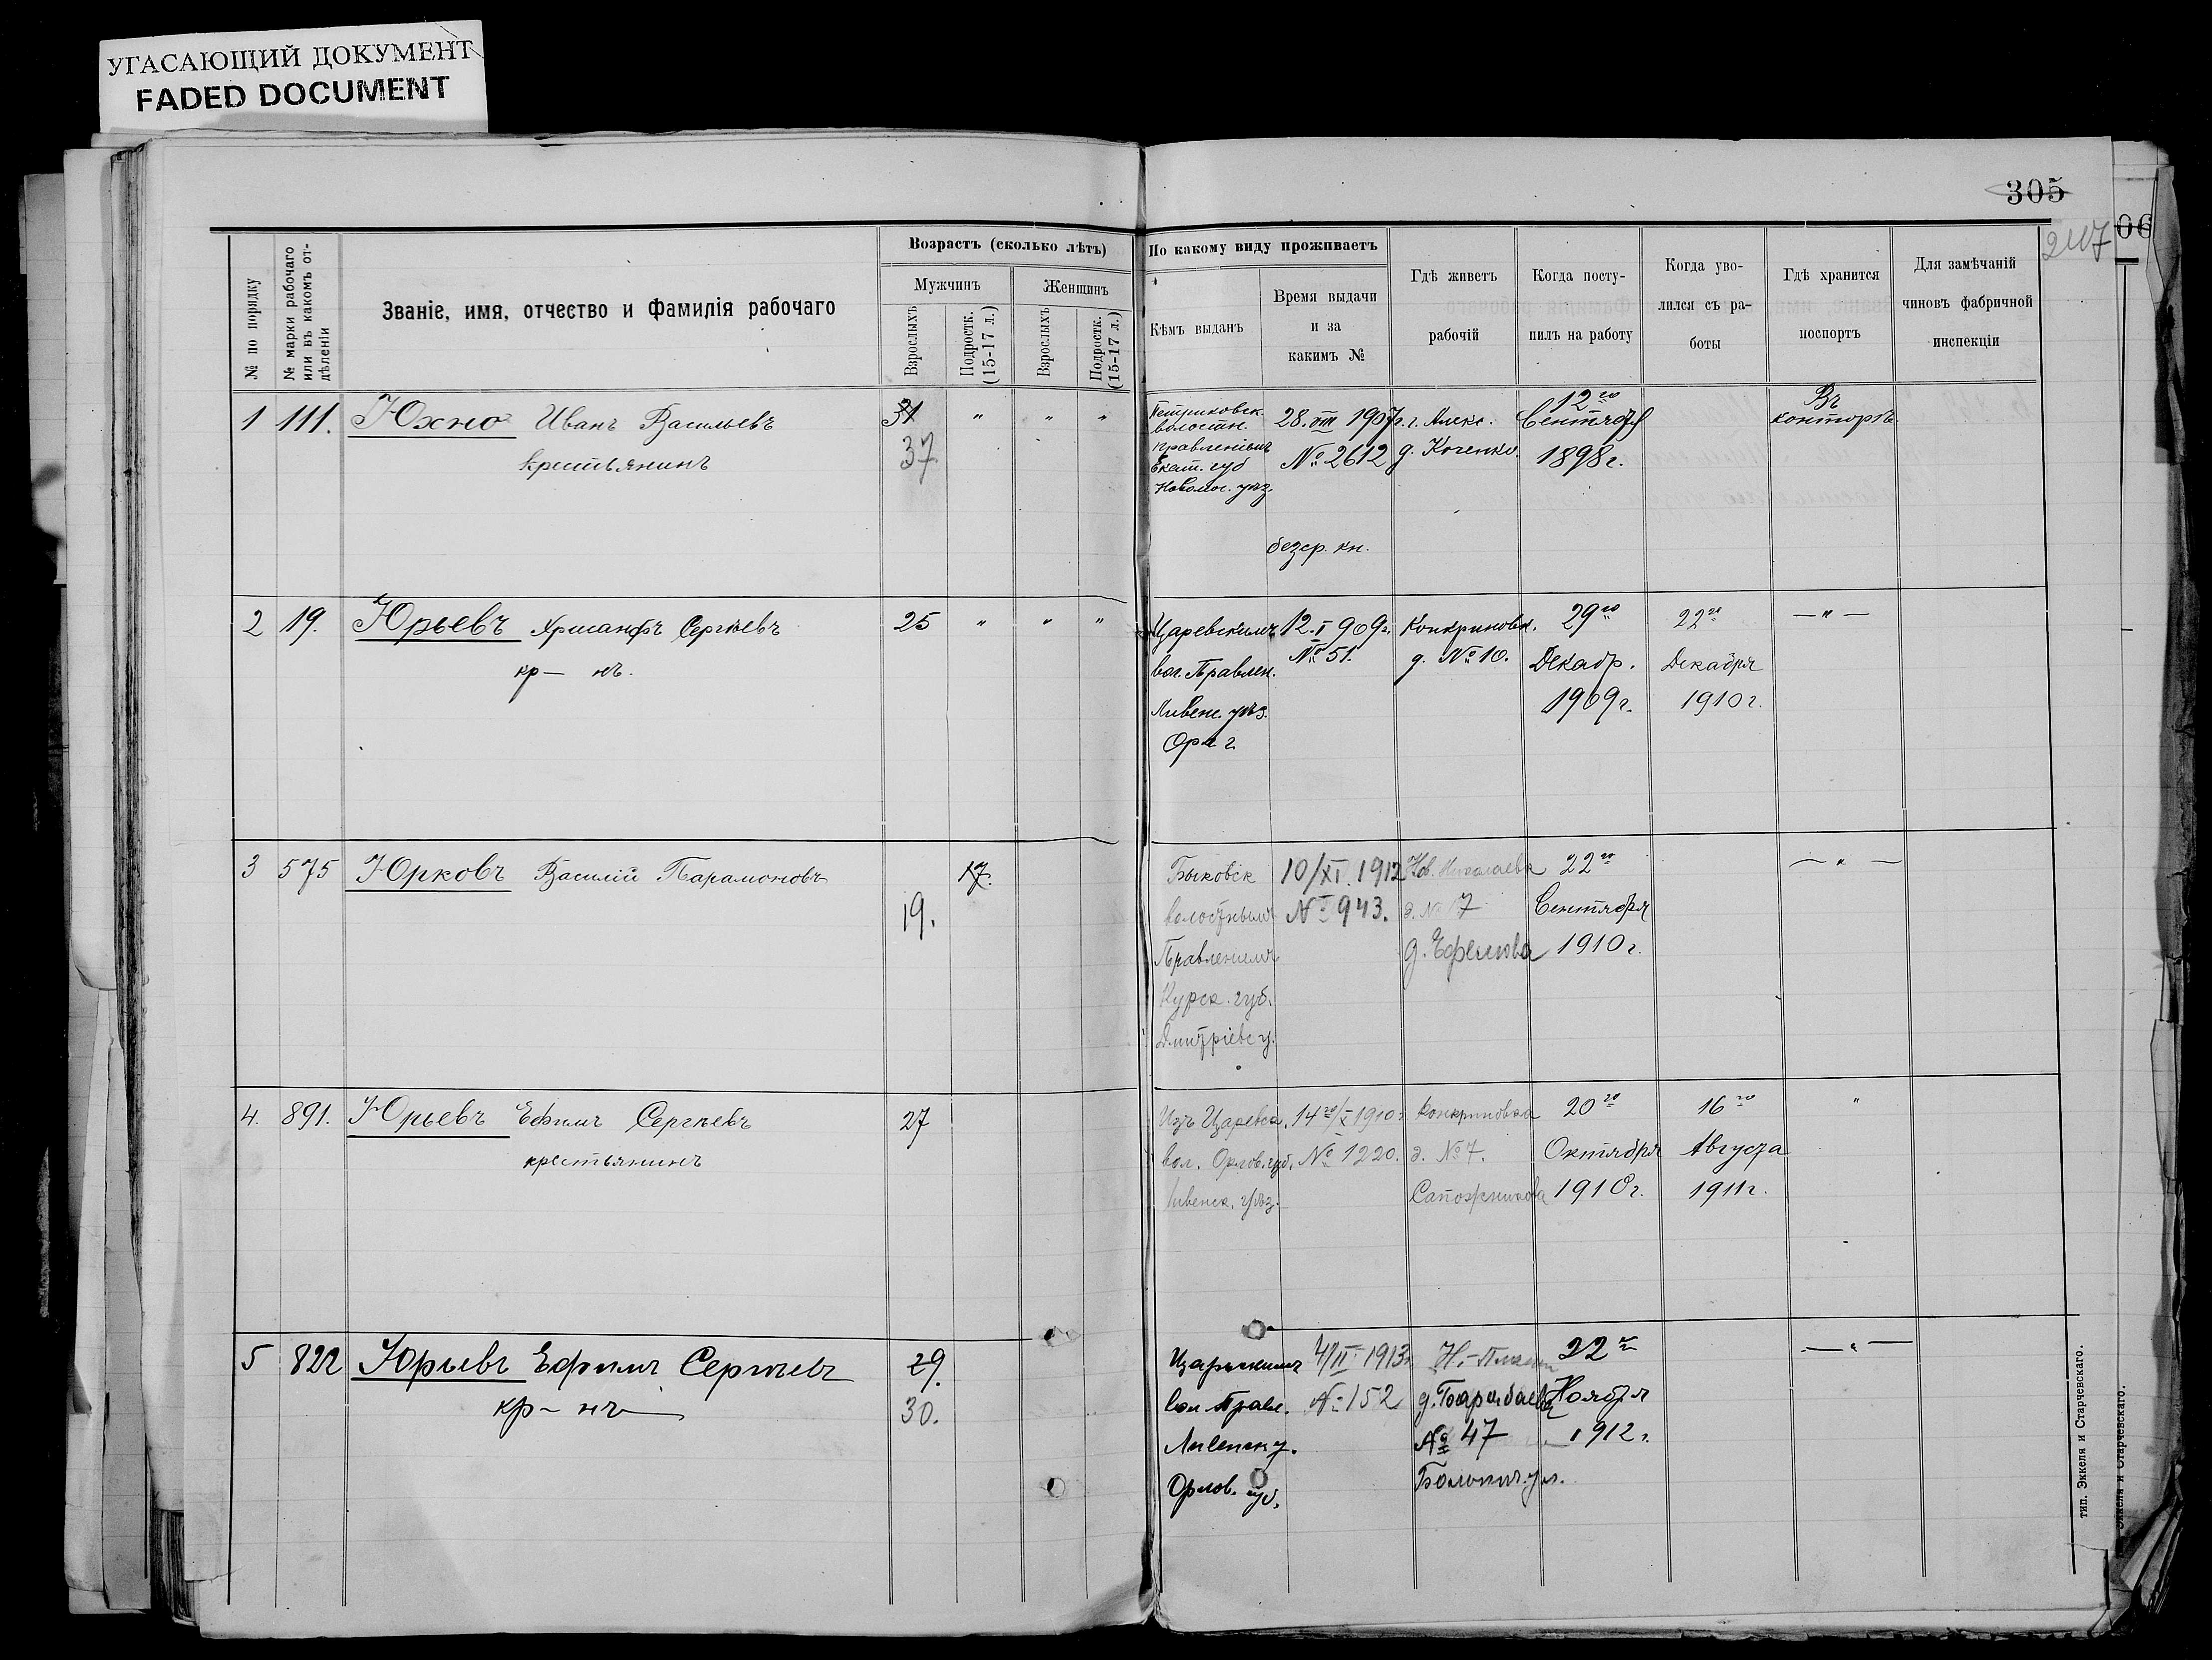 УГАСАЮЩИЙ ДОКУМЕНТ
FADED DOCUMENT
305
2117
06
№ по порядку
№ марки рабочаго или въ какомъ отдѣленіи
Званіе, имя, отчество и фамилія рабочаго
Возрастъ (сколько лѣтъ)
Мужчинъ
Женщинъ
Взрослыхъ
Подростк. (15-17 л.)
Взрослыхъ
Подростк. (15-17 л.)
По какому виду проживаетъ
Кѣмъ выданъ
Время выдачи и за какимъ №
Гдѣ живетъ рабочій
Когда поступилъ на работу
Когда уволился съ работы
Гдѣ хранится паспортъ
Для замѣчаній чиновъ фабричной инспекціи
1 111. Юхно Иванъ Васильевъ
крестьянинъ
31 " " "
37.
Петриковск.
волостн.
правленіемъ
Екат. губ
Новомос. уѣз.
28.VIII 1907г.
№ 2612
безср. кн.
г. Алекс.
д. Коченко.
12го
Сентября
1898г.
Въ
конторѣ
2 19. Юрьевъ Хрисанфъ Сергѣевъ
кр— нъ.
25 " " "
Царевскимъ
вол. Правлен.
Ливенс. уѣз.
Орл г
12.I 909г.
№ 51.
Конкриновк.
д. № 10.
29го
Декабр.
1909г.
22го
Декабря
1910г.
— " —
3 575 Юрковъ Василій Парамоновъ
17.
19.
Быковск
волостнымъ
Правленіемъ
Курск. губ.
Дмитріевс у.
10/XI. 1912
№ 943.
Нов. Николаевк
д. № 17
д. Ефимова
22го
Сентября
1910г.
— " —
4. 891. Юрьевъ Ефимъ Сергѣевъ
крестьянинъ
27
Изъ Царевск.
вол. Орлов. губ.
Ливенск. уѣз.
14го/X 1910г.
№ 1220.
Конкриновка
д. № 7.
Сапожникова
20го
Октября
1910г.
16го
Августа
1911г.
"
5 822 Юрьевъ Ефимъ Сергѣевъ
кр— нъ
29.
30.
Царевскимъ
вол. Правл.
Ливенск у.
Орлов. губ.
4/II 1913г.
№ 152
д. Барабаева
№ 47
22го
Ноября
1912г.
— " —
тип. Эккеля и Старчевскаго.
Эккеля и Старчевскаго.